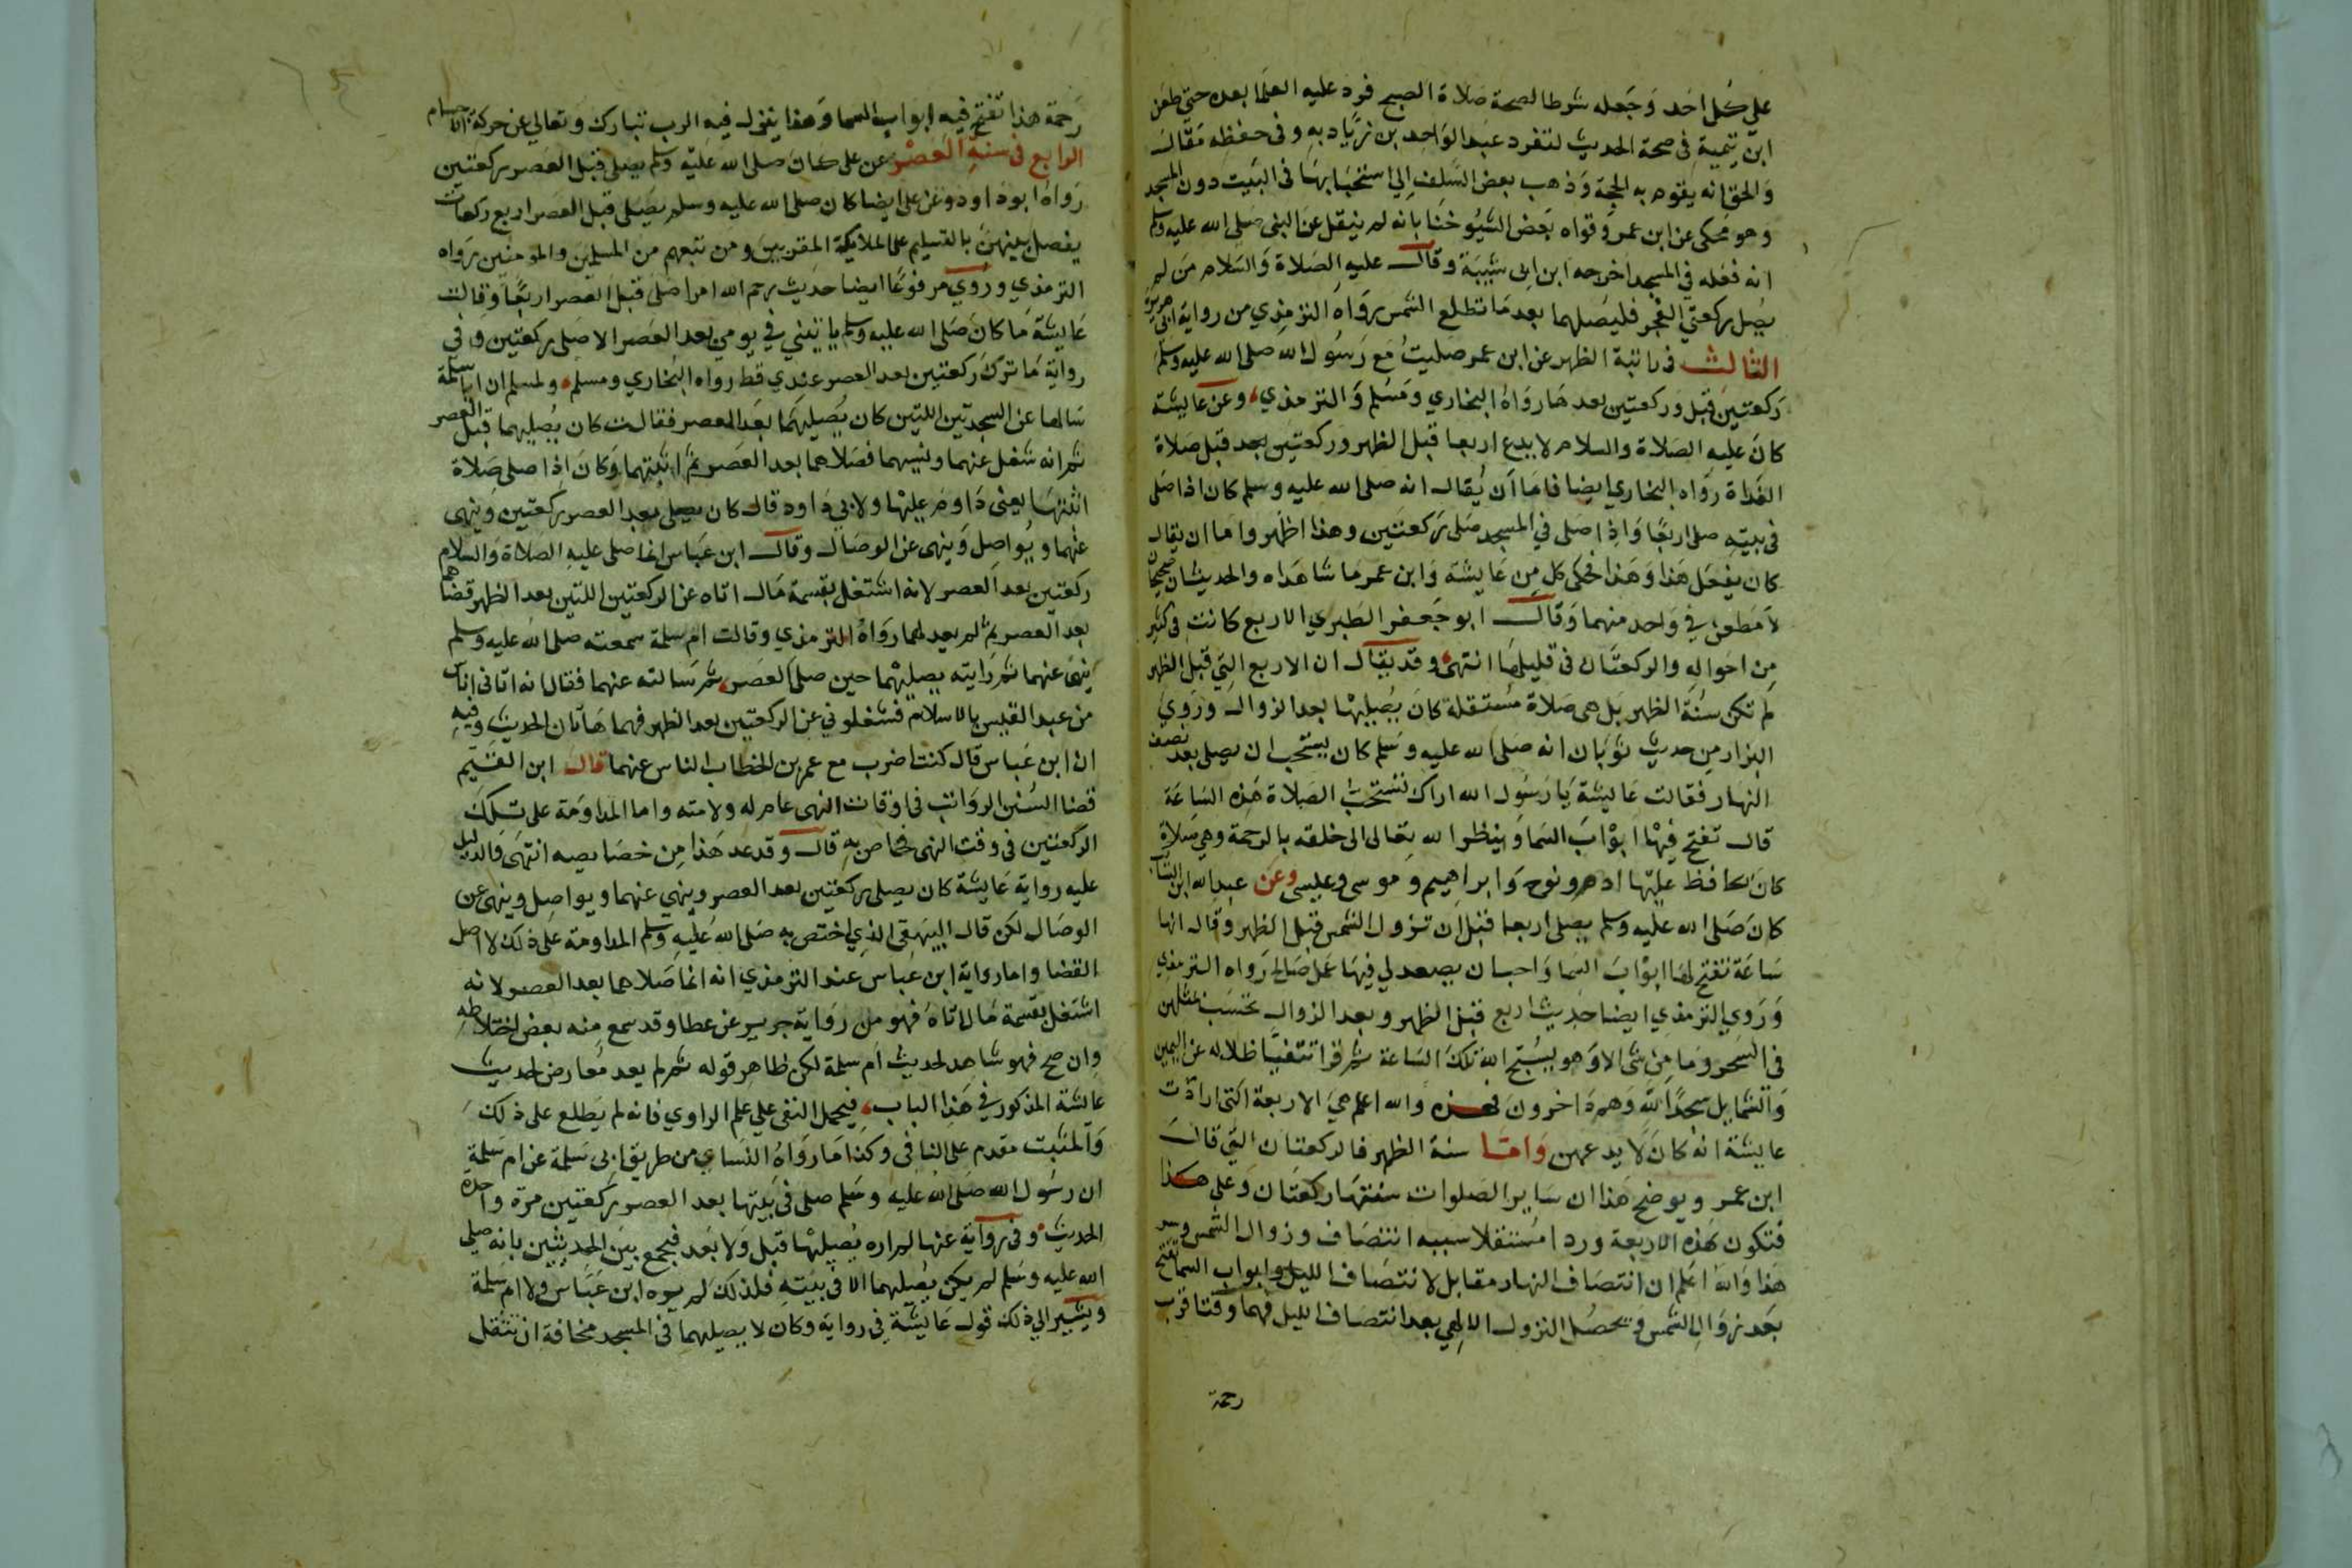 على كل احد وجعله شرطا لصحة صلاة الصبح فرد عليه العلما بعده حتى طعن
ابن تيمية في صحة الحديث لتفرد عبد الواحد بن زياد به وفي حفظه مقال
والحق انه يقوم به الحجة وذهب بعض السلف الي استحبابها في البيت دون المسجد
وهو محكى عن ابن عمر وقواه بعض الشيوخنا بانه لم ينقل عن النبي صلى الله عليه وسلم
انه فعله في المسجد اخرجه ابن ابى شيبة وقال عليه الصلاة والسلام من لم
يصل ركعتي الفجر فليصلهما بعد ما تطلع الشمس رواه الترمذي من رواية ابى هريرة
الثالث في راتبة الظهر عن ابن عمر صليت مع رسول الله صلى الله عليه وسلم
ركعتين قبل وركعتين بعدها رواه البخاري ومسلم والترمذي وعن عايشة
كان عليه الصلاة والسلام لا يدع اربعا قبل الظهر وركعتين بعد قبل صلاة
الغداة رواه البخاري ايضا فاما أن يقال انه صلى الله عليه وسلم كان اذا صلى
في بيته صلى اربعا واذا صلى في المسجد صلى ركعتين وهذا اظهر واما ان يقال
كان يفعل هذا وهذا فحكى كل من عايشة وابن عمر ما شاهداه والحديثان صحيحان
لا مطعن في واحد منهما وقال ابو جعفر الطبري الاربع كانت في كثير
من احواله والركعتان في قليلها انتهى وقد يقال ان الاربع التي قبل الظهر
لم تكن سنة الظهر بل هى صلاة مستقلة كان يصليها بعد الزوال وروي
البزار من حديث ثوبان انه صلى الله عليه وسلم كان يستحب ان يصلى بعد نصف
النهار فقالت عايشة يا رسول الله اراك تستحب الصلاة هذه الساعة
قال تفتح فيها ابواب السما وينظر الله تعالى الى خلقه بالرحمة وهى صلاة
كان يحافظ عليها ادم ونوح وابراهيم وموسى وعيسى وعن عبد الله ابن السائب
كان صلى الله عليه وسلم يصلى اربعا قبل ان تزول الشمس قبل الظهر وقال انها
ساعة تفتح لها ابواب السما واحب ان يصعد لي فيها عمل صالح رواه الترمذي
وروي الترمذي ايضا حديث اربع قبل الظهر وبعد الزوال تحسب بمثلهن
في السحر وما من شى الا وهو يسبح الله تلك الساعة ثم قرا تتفيا ظلاله عن اليمين
والشمايل سجدا لله وهم داخرون فهذه والله اعلم هي الاربعة التى ارادت
عايشة انه كان لا يدعهن واما سنة الظهر فالركعتان التي قال
ابن عمر ويوضح هذا ان ساير الصلوات سنتها ركعتان وعلى هذا
فتكون هذه الاربعة وردا مستقلا سببه انتصاف وزوال الشمس وسر
هذا والله اعلم ان انتصاف النهار مقابل لانتصاف الليل وابواب السما تفتح
بعد زوال الشمس ويحصل النزول الالهي بعد انتصاف الليل فهما وقتا قرب
رحمة
رحمة هذا تفتح فيه ابواب السما وهذا ينزل فيه الرب تبارك وتعالى عن حركة الاجسام
الرابع في سنة العصر عن على كان صلى الله عليه وسلم يصلى قبل العصر ركعتين
رواه ابو داود وعن على ايضا كان صلى الله عليه وسلم يصلى قبل العصر اربع ركعات
يفصل بينهن بالتسليم على الملايكة المقربين ومن تبعهم من المسلمين والمومنين رواه
الترمذي وروي مرفوعا ايضا حديث رحم الله امرا صلى قبل العصر اربعا وقالت
عايشة ما كان صلى الله عليه وسلم ياتيني في يومي بعد العصر الا صلى ركعتين وفى
رواية ما ترك ركعتين بعد العصر عندي قط رواه البخاري ومسلم ولمسلم ان ابا سلمة
سالها عن السجدتين اللتين كان يصليهما بعد العصر فقالت كان يصليهما قبل العصر
ثم انه شغل عنهما ونسيهما فصلاهما بعد العصر ثم اثبتهما وكان اذا صلى صلاة
اثبتها يعنى داوم عليها ولابي داود قال كان يصلى بعد العصر ركعتين وينهى
عنهما ويواصل وينهى عن الوصال وقال ابن عباس انما صلى عليه الصلاة والسلام
ركعتين بعد العصر لانه اشتغل بقسمة مال اتاه عن الركعتين اللتين بعد الظهر فقضاهما
بعد العصر ثم لم يعد لهما رواه الترمذي وقالت ام سلمة سمعته صلى الله عليه وسلم
ينهى عنهما ثم رايته يصليهما حين صلى العصر ثم سالته عنهما فقال انه اتانى اناس
من عبد القيس بالاسلام فشغلوني عن الركعتين بعد الظهر فهما هاتان الحديث وفيه
ان ابن عباس قال كنت اضرب مع عمر بن الخطاب الناس عنهما قال ابن القيم
قضا السنن الرواتب في اوقات النهى عام له ولامته واما المداومة على تلك
الركعتين في وقت النهى فخاص به قال وقد عد هذا من خصايصه انتهى والدليل
عليه رواية عايشة كان يصلى ركعتين بعد العصر وينهي عنهما ويواصل وينهى عن
الوصال لكن قال البيهقى الذي اختص به صلى الله عليه وسلم المداومة على ذلك لا اصل
القضا واما رواية ابن عباس عند الترمذي انه انما صلاهما بعد العصر لانه
اشتغل بقسمة مال اتاه فهو من رواية جرير عن عطا وقد سمع منه بعض اختلاطه
وان صح فهو شاهد لحديث ام سلمة لكن ظاهر قوله ثم لم يعد معارض لحديث
عايشة المذكور في هذا الباب فيحمل النفى على علم الراوي فانه لم يطلع على ذلك
والمثبت مقدم على النافى وكذا ما رواه النساي من طريق ابى سلمة عن ام سلمة
ان رسول الله صلى الله عليه وسلم صلى فى بيتها بعد العصر ركعتين مرة واحدة
الحديث وفى رواية عنها لم اره يصليها قبل ولا بعد فيجمع بين الحديثين بانه صلى
الله عليه وسلم لم يكن يصليهما الا في بيته فلذلك لم يره ابن عباس ولا ام سلمة
ويشير الي ذلك قول عايشة في رواية وكان لا يصليهما في المسجد مخافة ان تثقل